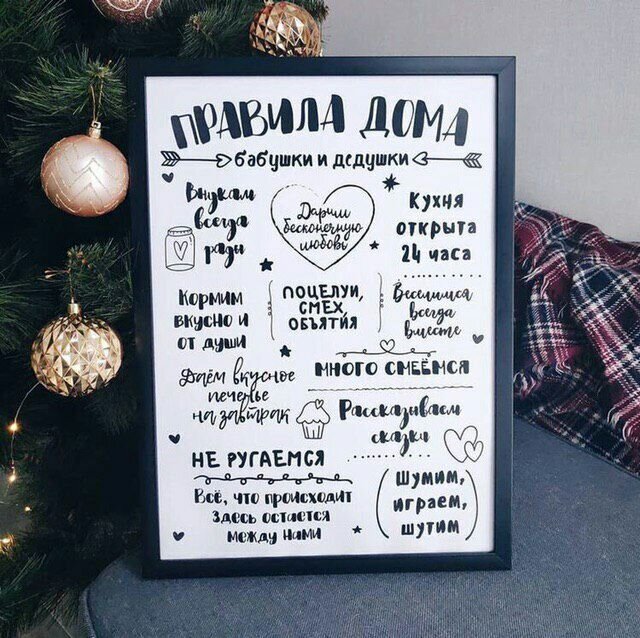 ПРАВИЛА ДОМА
бабушки и дедушки
Внукам
всегда
рады
Дарим
бесконечную
любовь
Кухня
открыта
24 часа
Кормим
вкусно и
от души
ПОЦЕЛУИ,
СМЕХ,
ОБЪЯТИЯ
Веселимся
всегда
вместе
Даём вкусное
печенье
на завтрак
МНОГО СМЕЁМСЯ
Рассказываем
сказки
НЕ РУГАЕМСЯ
Всё, что происходит
здесь остается
между нами
Шумим,
играем,
шутим